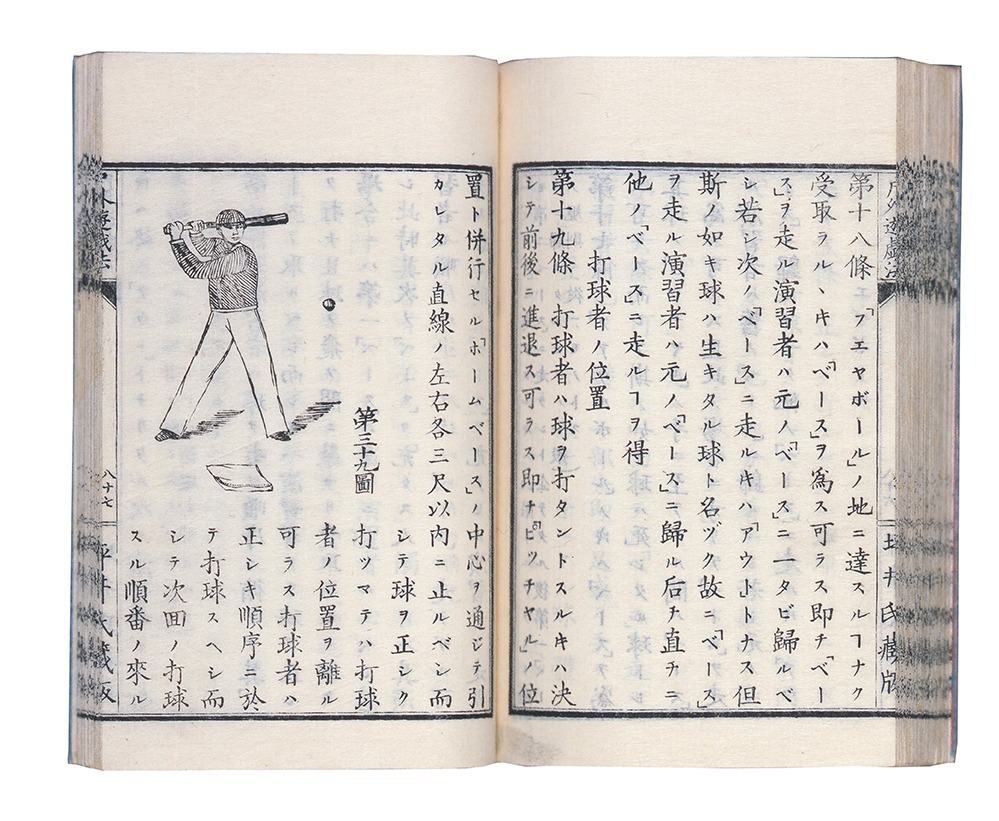 第十八條「フエヤボール」ノ地ニ達スルヿナク
受取ラルヽキハ「ベース」ヲ爲ス可ラス即チ「ベー
ス」ヲ走ル演習者ハ元ノ「ベース」ニ一タビ歸ルベ
シ若シ次ノ「ベース」ニ走ルキハ「アウト」トナス但
斯ノ如キ球ハ生キタル球ト名ヅク故ニ「ベース」
ヲ走ル演習者ハ元ノ「ベース」ニ歸ル后チ直チニ
他ノ「ベース」ニ走ルヿヲ得
打球者ノ位置
第十九條 打球者ハ球ヲ打タントスルキハ決
シテ前後ニ進退ス可ラス即チ「ピツチヤル」ノ位
置ト併行セル「ホームベース」ノ中心ヲ通ジテ引
カレタル直線ノ左右各三尺以內ニ止ルベシ而
シテ球ヲ正シク
打ツマテハ打球
者ノ位置ヲ離ル
可ラス打球者ハ
正シキ順序ニ於
テ打球スヘシ而
シテ次回ノ打球
スル順番ノ來ル
第三十九圖
遊戲法
八十七
坪井氏藏版